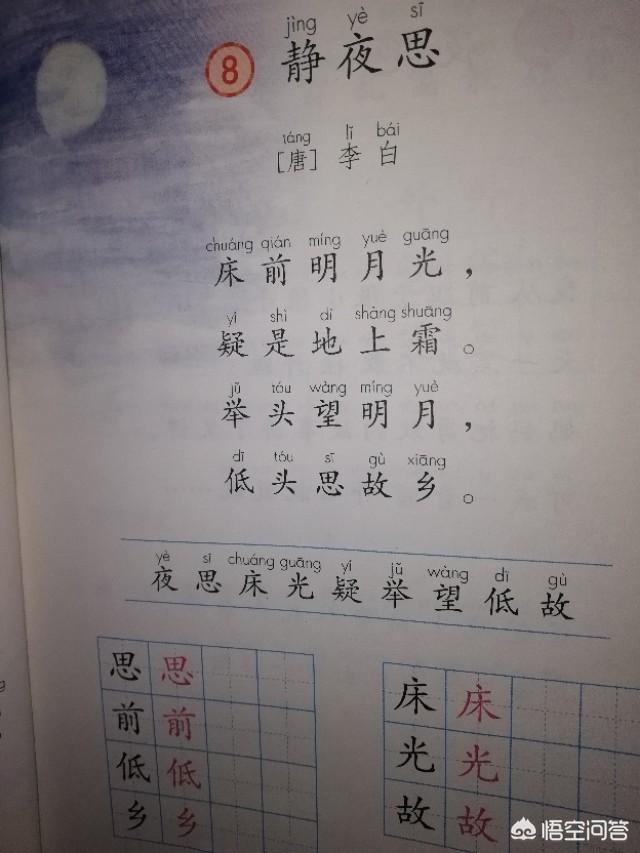 jìng yè sī
8 静夜思
táng lǐ bái
[唐] 李白
chuáng qián míng yuè guāng
床前明月光，
yí shì dì shàng shuāng
疑是地上霜。
jǔ tóu wàng míng yuè
举头望明月，
dī tóu sī gù xiāng
低头思故乡。
yè sī chuáng guāng yí jǔ wàng dī gù
夜思床光疑举望低故
思思
前前
低低
乡乡
床床
光光
故故
悟空问答